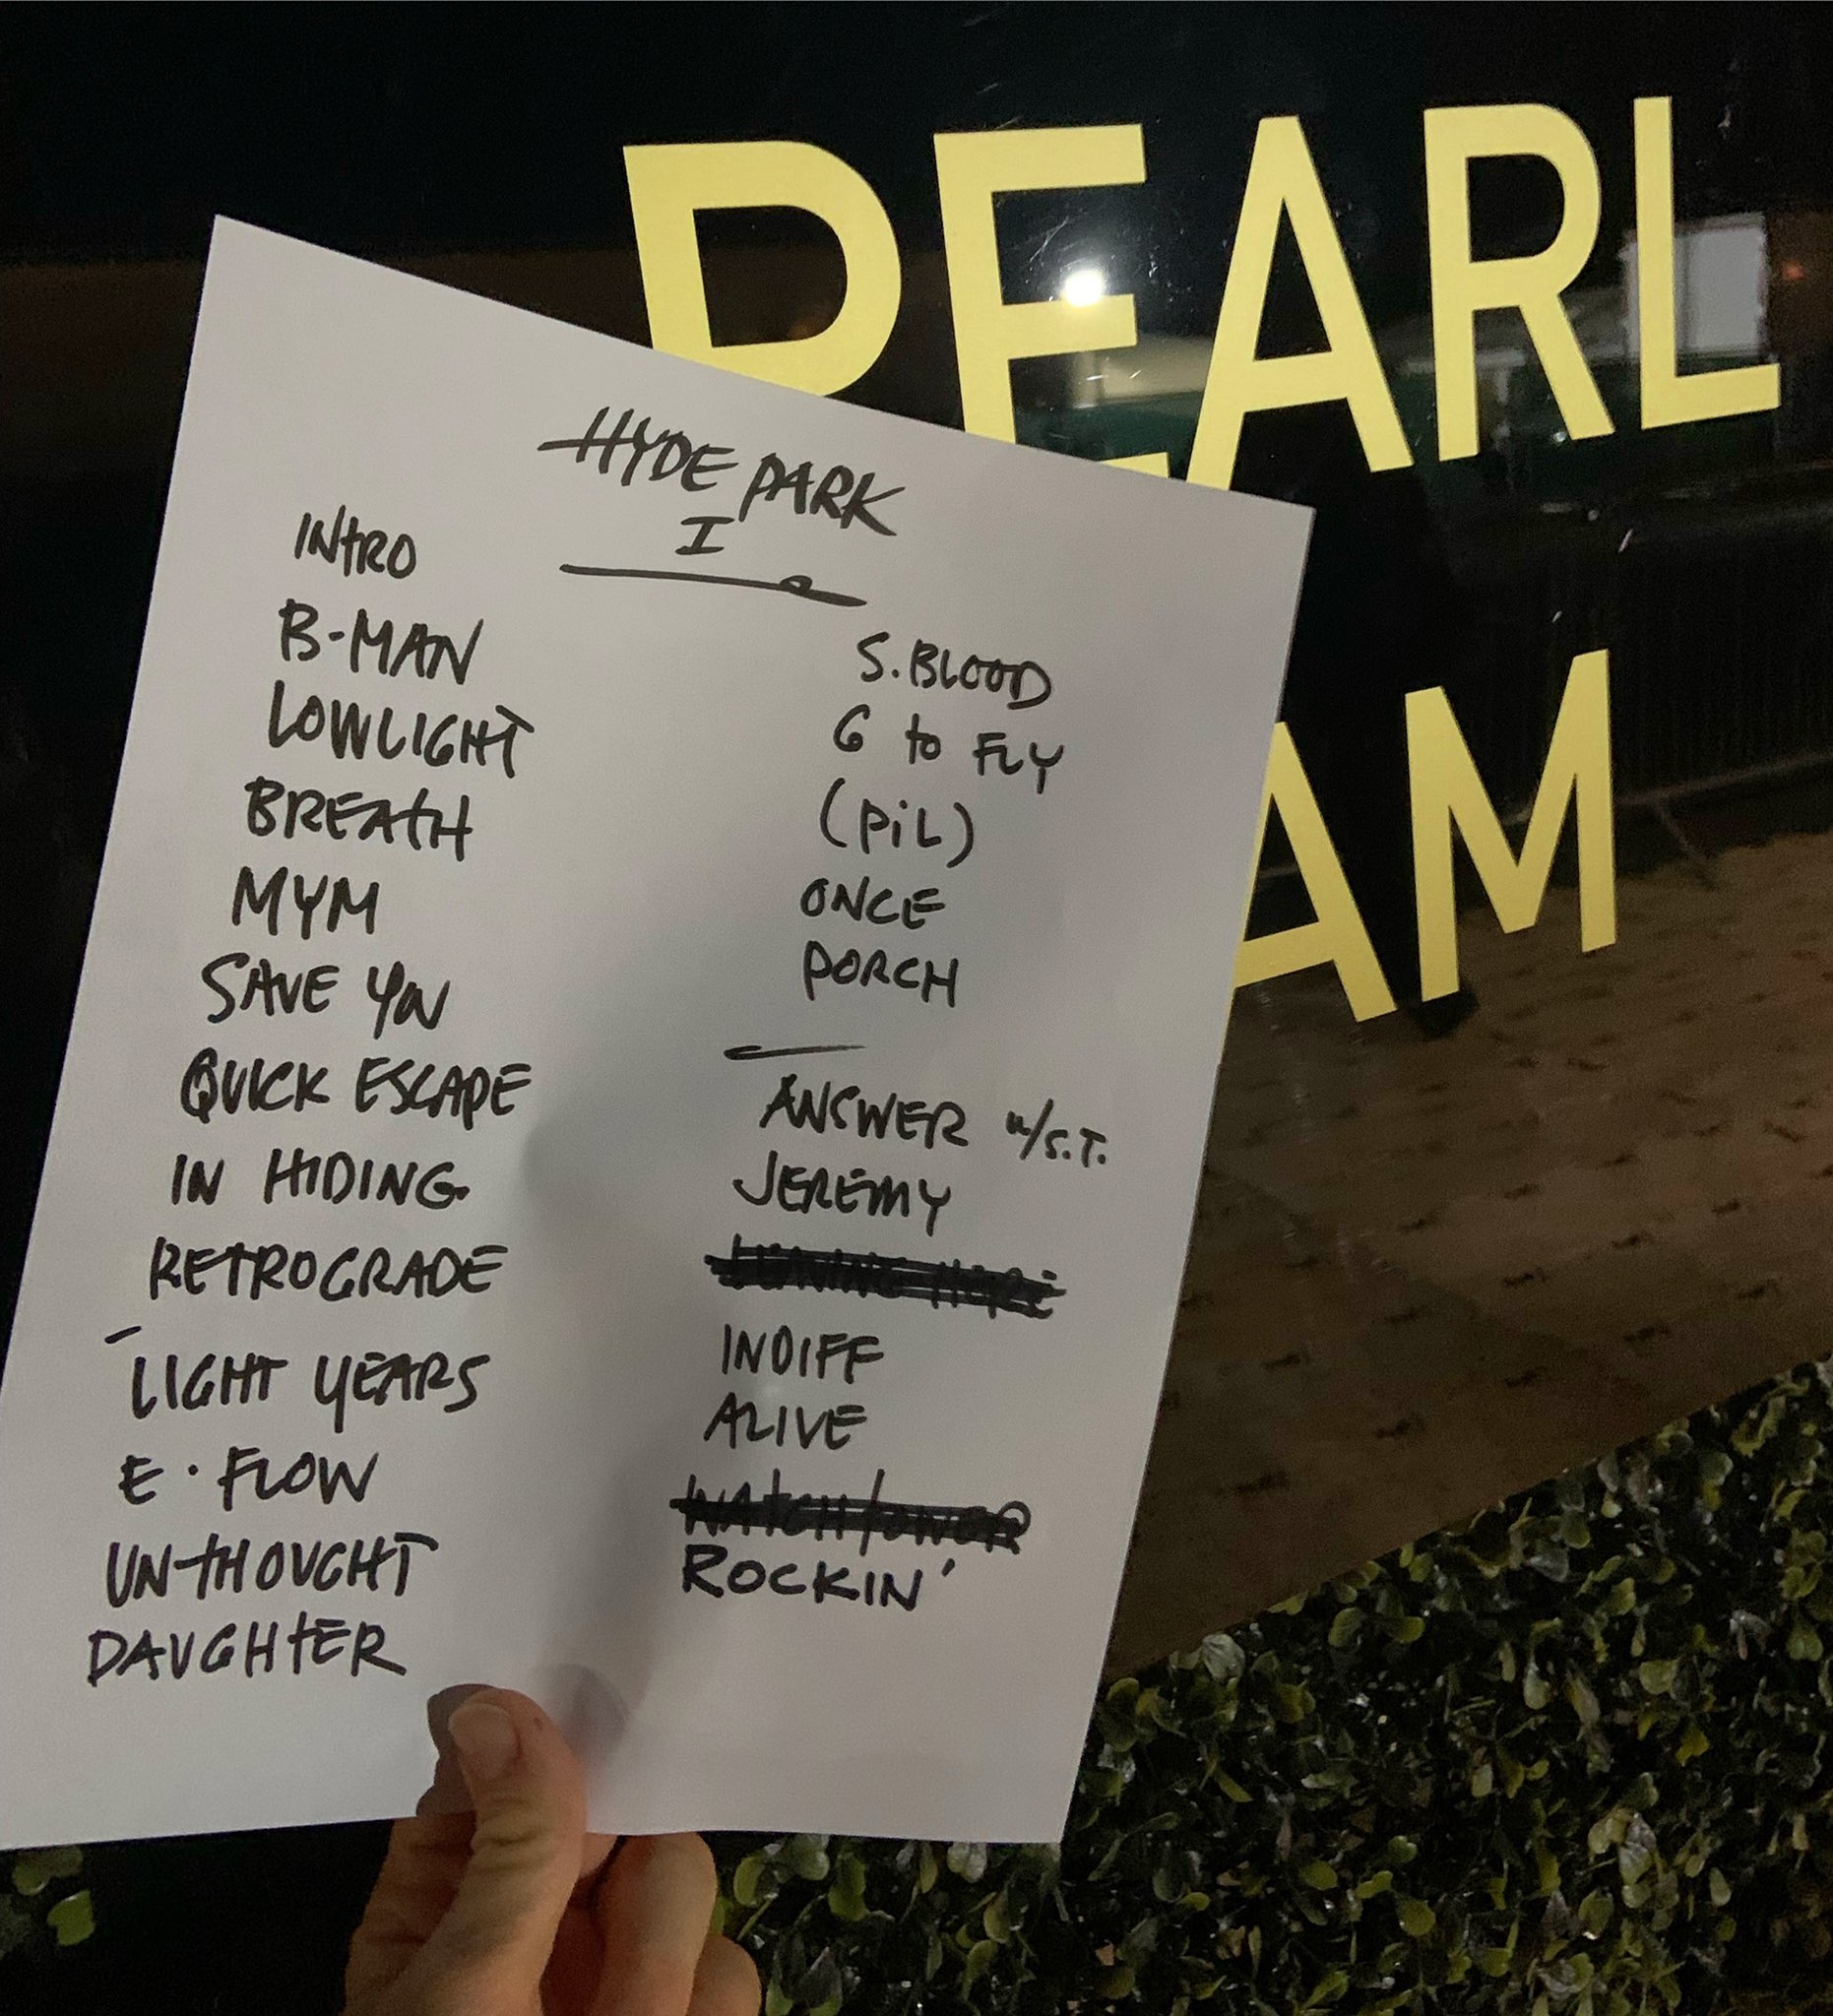 PEARL
JAM
HYDE PARK
I
INTRO
B-MAN
LOWLIGHT
BREATH
MYM
SAVE YOU
QUICK ESCAPE
IN HIDING
RETROGRADE
LIGHT YEARS
E. FLOW
UNTHOUGHT
DAUGHTER
S. BLOOD
G to FLY
(PiL)
ONCE
PORCH
ANSWER w/S.T.
JEREMY
INDIFF
ALIVE
WATCHTOWER
ROCKIN'